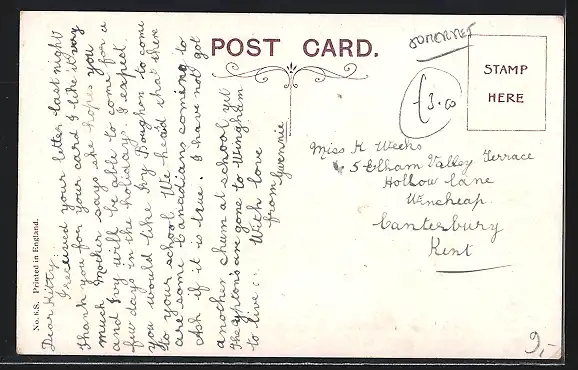 POST CARD.
SOMERSET
£3.00
STAMP
HERE
Dear Kitty.
I received your letter last night
Thank you for your card I like it very
much Mother says she hopes you
and Ivy will be able to come for a
few days in the holidays. I expect
you would like Ivy Boughton to come
to your school. We heard that there
are some Canadians coming to
Ash if it is true. I have not got
another chum at school yet
The yptons are gone to Wingham
to live. With love
from Gwennie
Miss K Weeks
5 Elham Valley Terrace
Hollow Lane
Wincheap
Canterbury
Kent
No. 6.S. Printed in England.
9,-